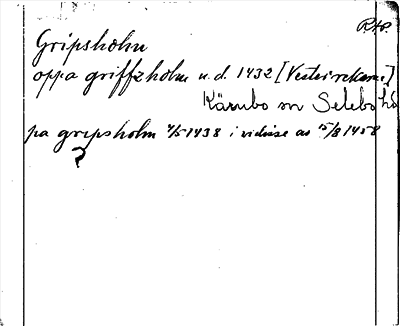 RAp.
Gripsholm
oppa griffzholm u.d. 1432 [Vesterrekarne]
Kärnbo sn Selebo hd
pa gripsholm 4/5 1438 i vidisse av 15/8 1458
?